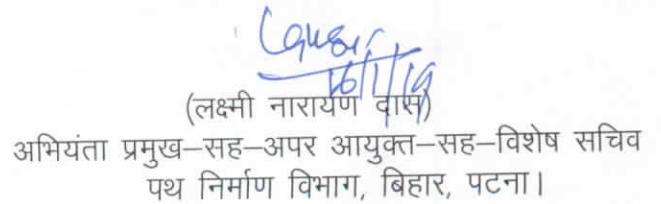 16/1/19
(लक्ष्मी नारायण दास)
अभियंता प्रमुख–सह–अपर आयुक्त–सह–विशेष सचिव
पथ निर्माण विभाग, बिहार, पटना।